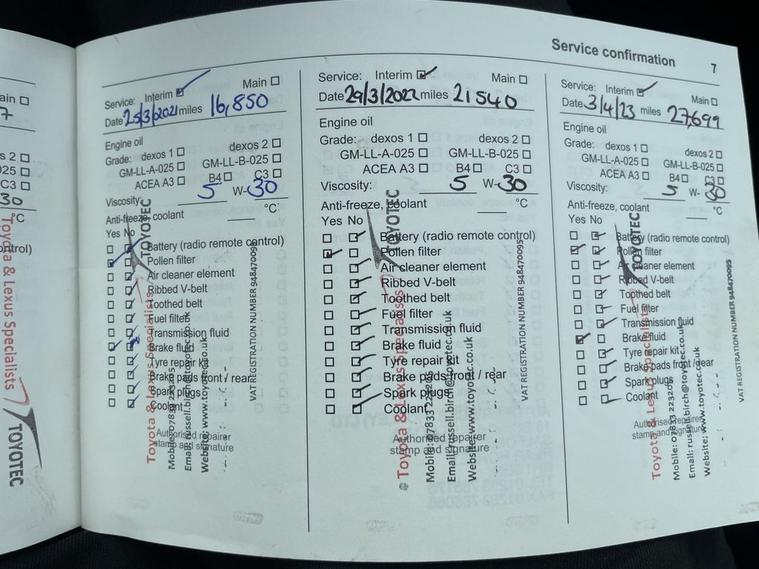 Service confirmation 7
ain
7
s 2
025
C3
30
ontrol)
Toyota & Lexus Specialists
TOYOTEC
Service: Interim Main
Date 25/3/2021 miles 16,850
Engine oil
Grade: dexos 1 dexos 2
GM-LL-A-025 GM-LL-B-025
ACEA A3 B4 C3
Viscosity: 5 W-30
Anti-freeze, coolant °C
Yes No
Battery (radio remote control)
Pollen filter
Air cleaner element
Ribbed V-belt
Toothed belt
Fuel filter
Transmission fluid
Brake fluid
Tyre repair kit
Brake pads front / rear
Spark plugs
Coolant
Authorised repairer
stamp and signature
TOYOTEC
Toyota & Lexus Specialists
Mobile: 07833 223205
Email: russell.birch@toyotec.co.uk
Website: www.toyotec.co.uk
VAT REGISTRATION NUMBER 948470095
Service: Interim Main
Date 29/3/2022 miles 21540
Engine oil
Grade: dexos 1 dexos 2
GM-LL-A-025 GM-LL-B-025
ACEA A3 B4 C3
Viscosity: 5 W-30
Anti-freeze, coolant °C
Yes No
Battery (radio remote control)
Pollen filter
Air cleaner element
Ribbed V-belt
Toothed belt
Fuel filter
Transmission fluid
Brake fluid
Tyre repair kit
Brake pads front / rear
Spark plugs
Coolant
Authorised repairer
stamp and signature
TOYOTEC
Toyota & Lexus Specialists
Mobile: 07833 223205
Email: russell.birch@toyotec.co.uk
Website: www.toyotec.co.uk
VAT REGISTRATION NUMBER 948470095
Service: Interim Main
Date 3/4/23 miles 27,699
Engine oil
Grade: dexos 1 dexos 2
GM-LL-A-025 GM-LL-B-025
ACEA A3 B4 C3
Viscosity: 5 W-30
Anti-freeze, coolant °C
Yes No
Battery (radio remote control)
Pollen filter
Air cleaner element
Ribbed V-belt
Toothed belt
Fuel filter
Transmission fluid
Brake fluid
Tyre repair kit
Brake pads front / rear
Spark plugs
Coolant
Authorised repairer
stamp and signature
TOYOTEC
Toyota & Lexus Specialists
Mobile: 07833 223205
Email: russell.birch@toyotec.co.uk
Website: www.toyotec.co.uk
VAT REGISTRATION NUMBER 948470095